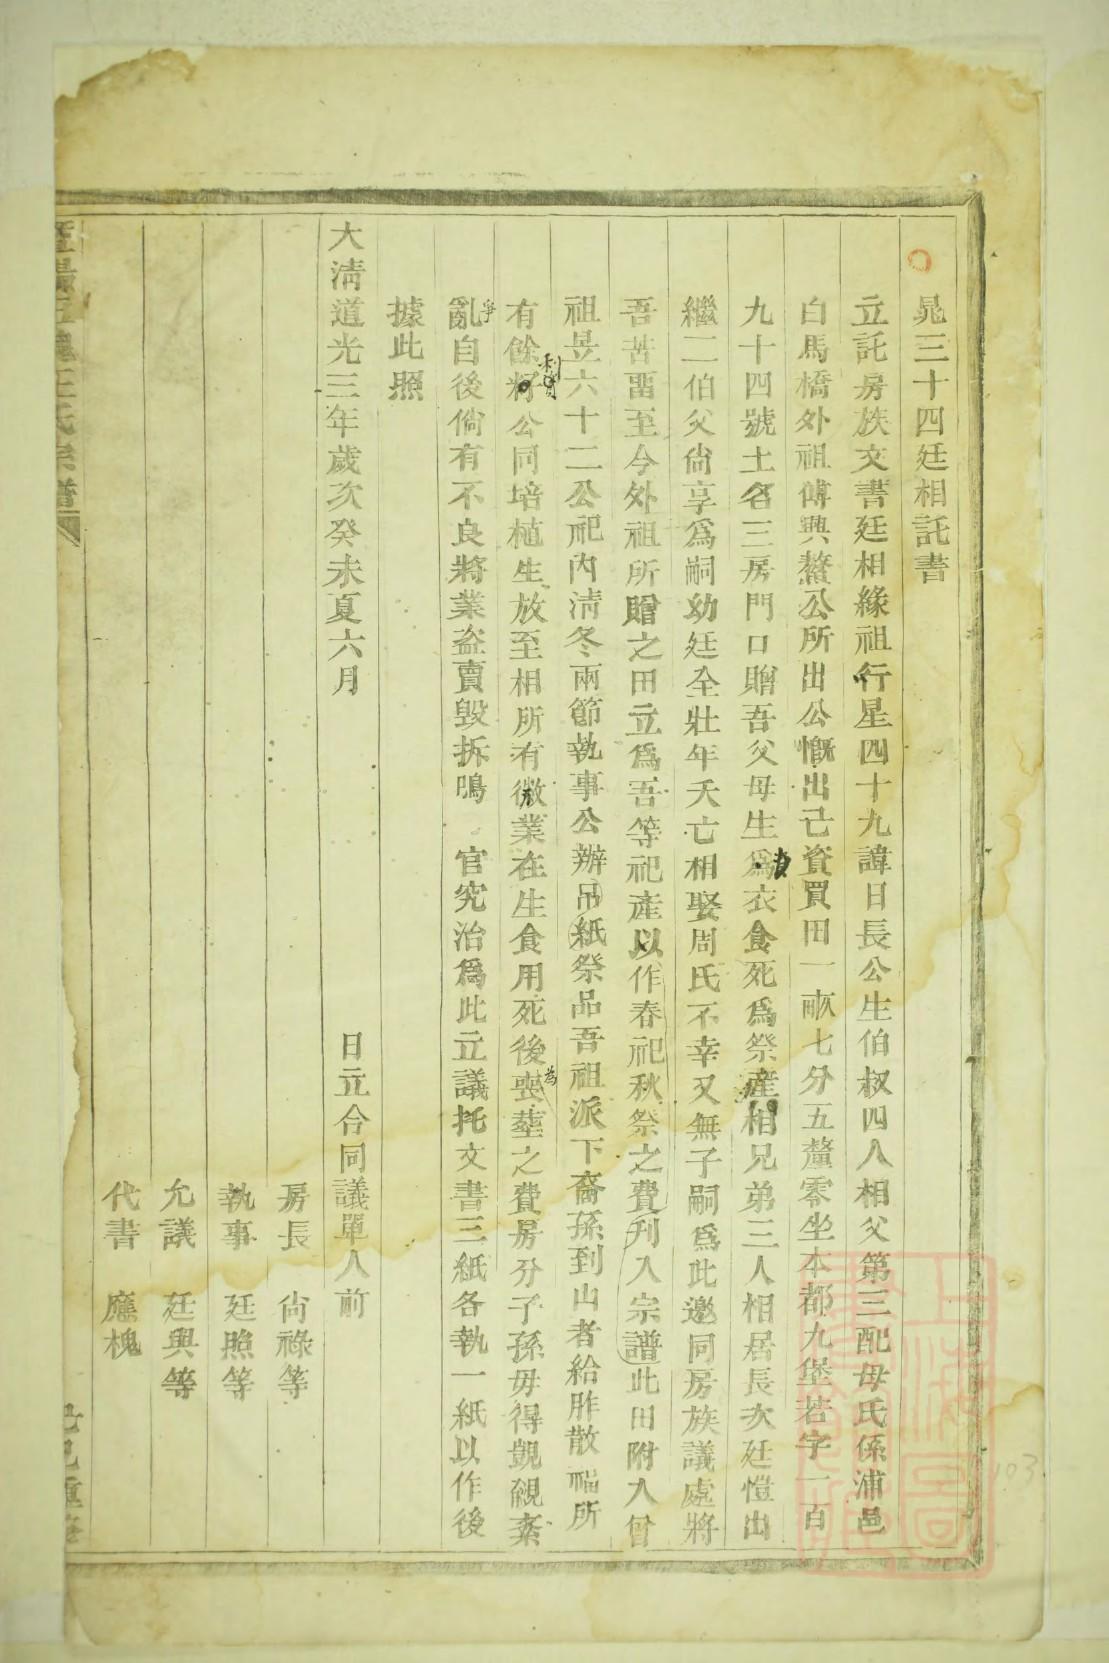 晁三十四廷相託書
立託房族文書廷相緣祖行星四十九諱日長公生伯叔四人相父第三配毋氏係浦邑
白馬橋外祖傅興鰲公所出公慨出己資買田一畝七分五釐零坐本都九堡若字一百
九十四號土名三房門口贈吾父母生爲衣食死爲祭產相兄弟三人相居長次廷愷出
繼二伯父尙享爲嗣幼廷全壯年夭亡相娶周氏不幸又無子嗣爲此邀同房族議處將
吾苦畱至今外祖所贈之田立爲吾等祀產以作春祀秋祭之費刋入宗譜此田附入曾
祖昱六十二公祀內淸冬兩節執事公辦吊紙祭品吾祖派下裔孫到山者給胙散福所
有餘籽公同培植生放至相所有微業在生食用死後喪塟之費房分子孫毋得覬覦紊
亂自後倘有不良將業盜賣毀拆鳴 官究治爲此立議托文書三紙各執一紙以作後
據此照
大淸道光三年歲次癸未夏六月 日立合同議單人前
房長 尙祿等
執事 廷照等
允議 廷興等
代書 應槐
王氏宗譜 己重修
103